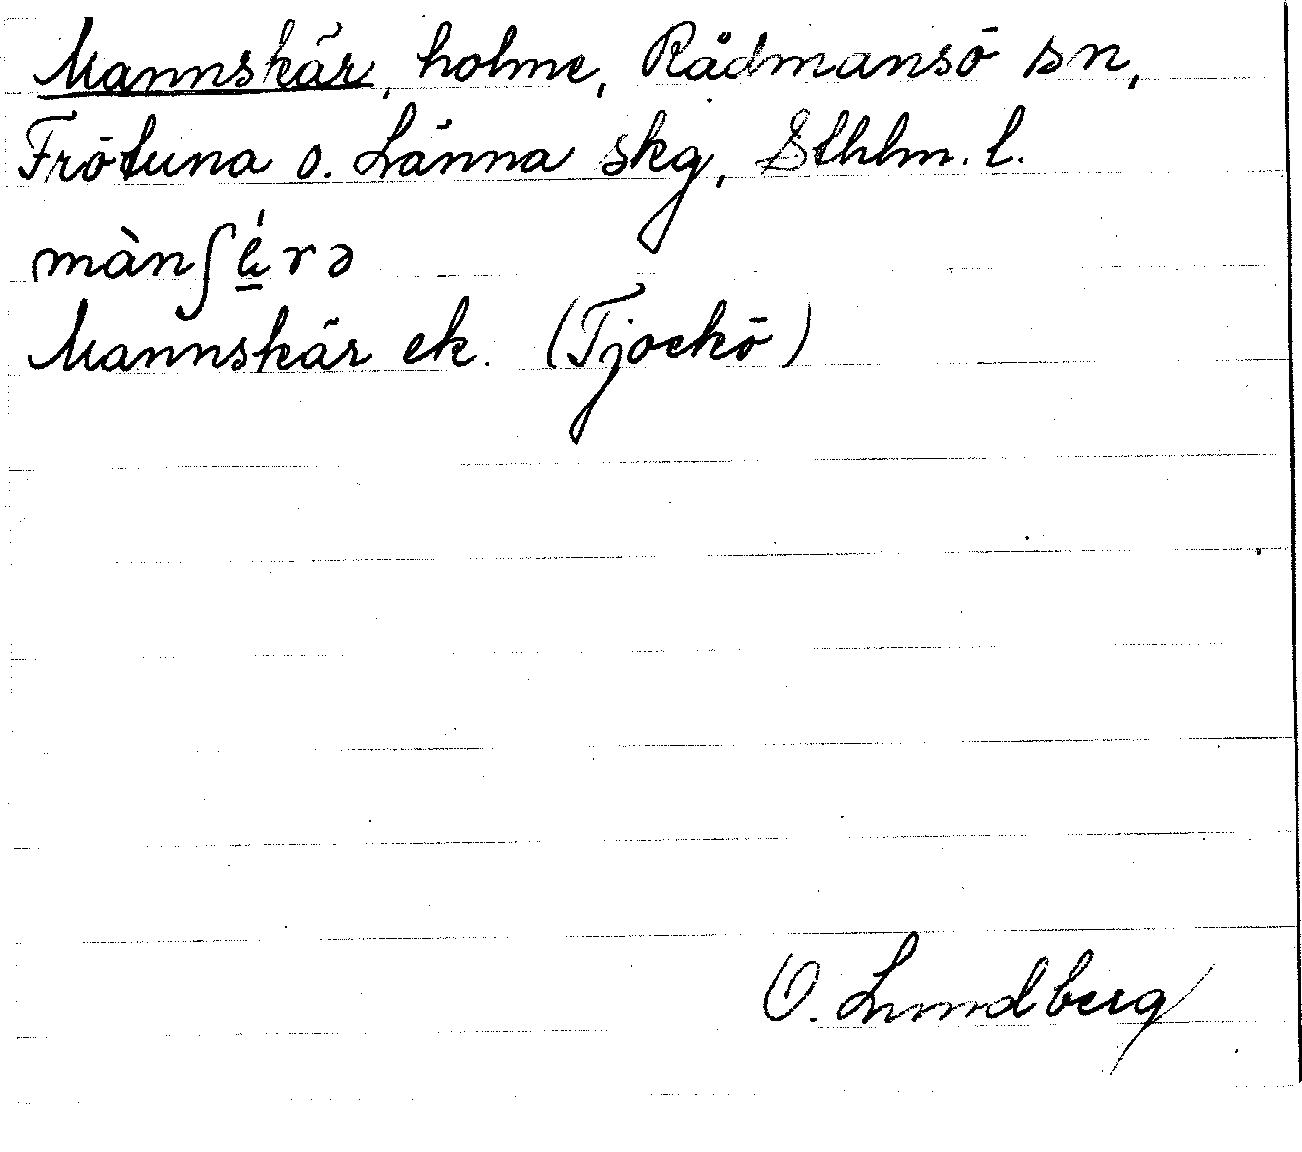 Mannskär, holme, Rådmansö sn,
Frötuna o. Länna skg, Sthlm. l.
mànʃé̱rə
Mannskär ek. (Tjockö)
O. Lundberg